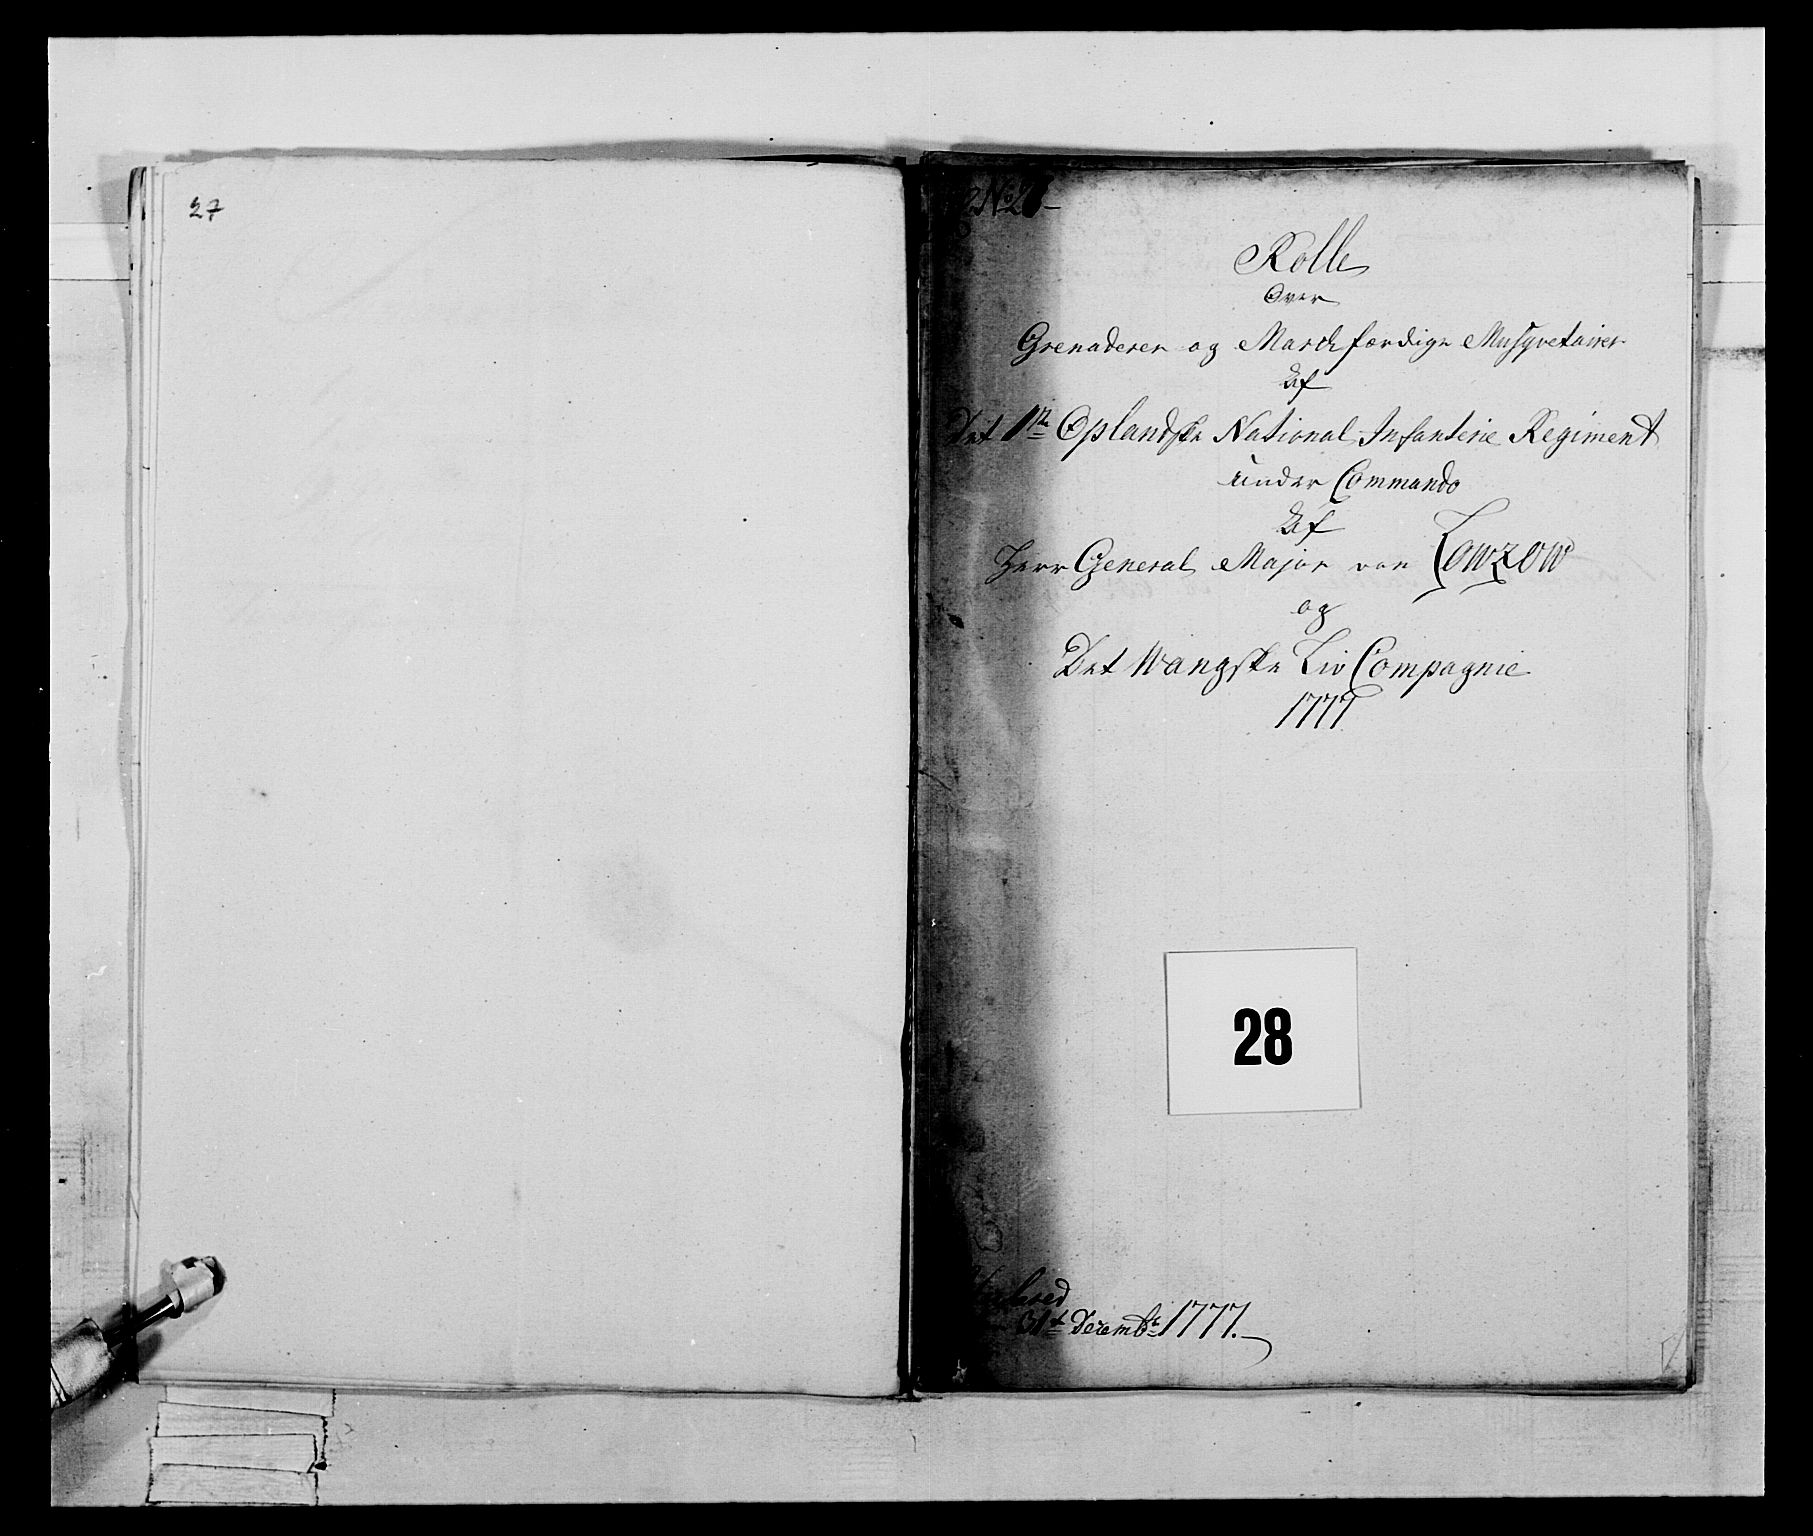 27
No 28
Rolle
Over
Grenaderer og Marchfærdige Musqvetairer
Af
Det 1te Oplandske National Infanterie Regiment
under Commando
Af
Herr General Major von Lowzow
og
Det Wangske Liv Compagnie
1777
28
31te Decembr 1777.